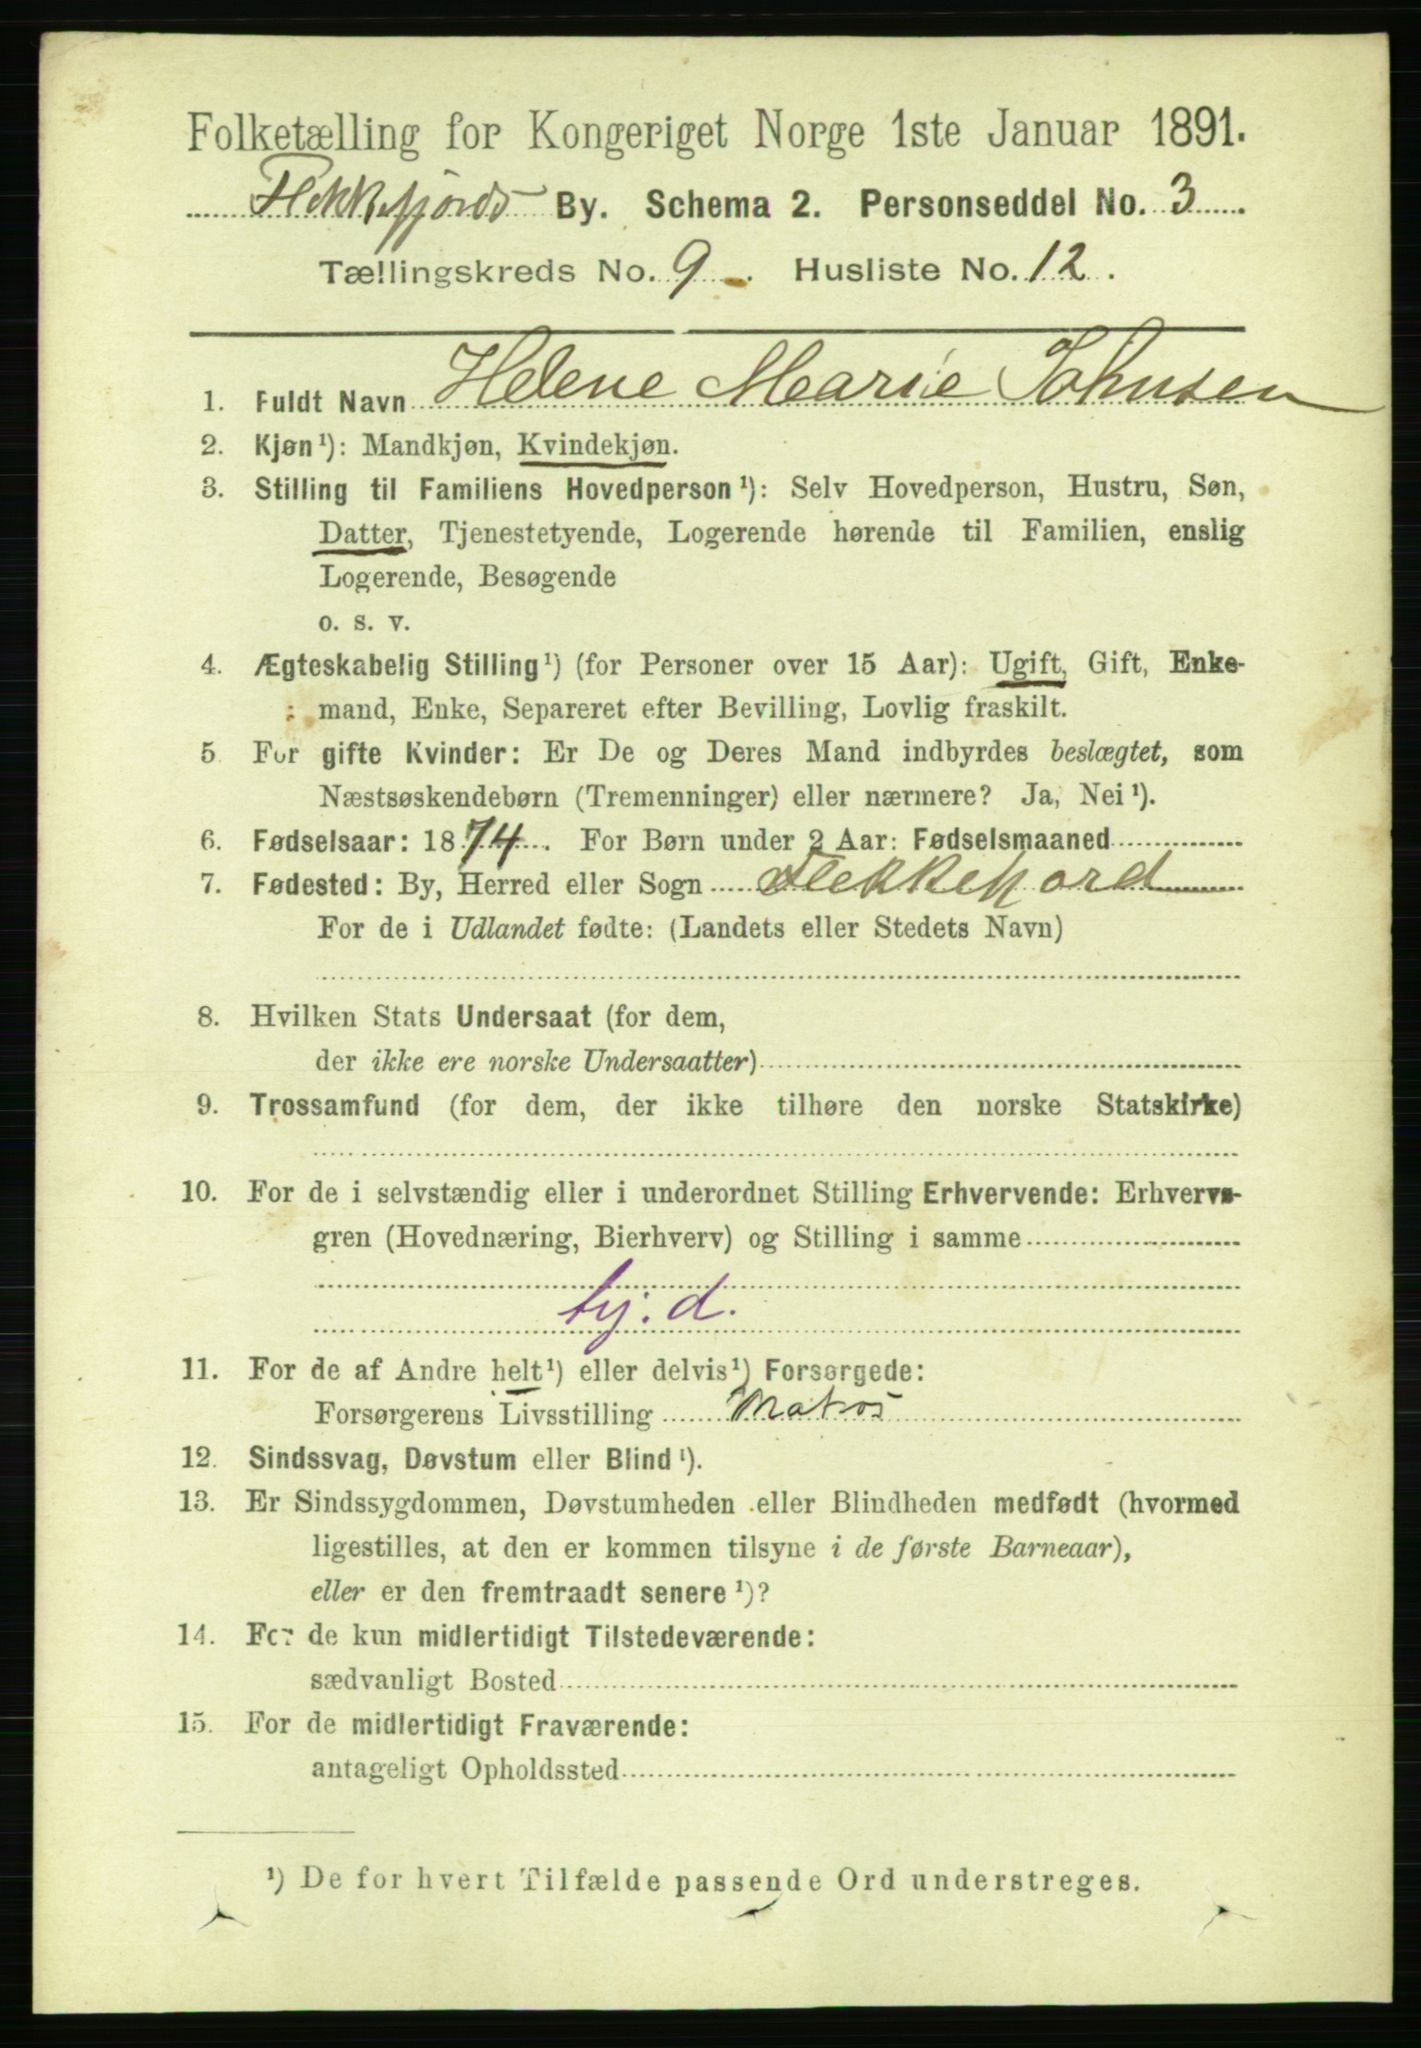 Folketælling for Kongeriget Norge 1ste Januar 1891.
Flekkefjords By. Schema 2. Personseddel No. 3
Tællingskreds No. 9. Husliste No. 12.
1. Fuldt Navn Helene Marie Johnsen
2. Kjøn¹): Mandkjøn, Kvindekjøn.
3. Stilling til Familiens Hovedperson¹): Selv Hovedperson, Hustru, Søn,
Datter, Tjenestetyende, Logerende hørende til Familien, enslig
Logerende, Besøgende
o. s. v.
4. Ægteskabelig Stilling¹) (for Personer over 15 Aar): Ugift, Gift, Enke-
mand, Enke, Separeret efter Bevilling, Lovlig fraskilt.
5. For gifte Kvinder: Er De og Deres Mand indbyrdes beslægtet, som
Næstsøskendebørn (Tremenninger) eller nærmere? Ja, Nei¹).
6. Fødselsaar: 1874. For Børn under 2 Aar: Fødselsmaaned
7. Fødested: By, Herred eller Sogn Flekkefjord
For de i Udlandet fødte: (Landets eller Stedets Navn)
8. Hvilken Stats Undersaat (for dem,
der ikke ere norske Undersaatter)
9. Trossamfund (for dem, der ikke tilhøre den norske Statskirke)
10. For de i selvstændig eller i underordnet Stilling Erhvervende: Erhvervs-
gren (Hovednæring, Bierhverv) og Stilling i samme
tj. d.
11. For de af Andre helt¹) eller delvis¹) Forsørgede:
Forsørgerens Livsstilling Matros
12. Sindssvag, Døvstum eller Blind¹).
13. Er Sindssygdommen, Døvstumheden eller Blindheden medfødt (hvormed
ligestilles, at den er kommen tilsyne i de første Barneaar),
eller er den fremtraadt senere¹)?
14. For de kun midlertidigt Tilstedeværende:
sædvanligt Bosted
15. For de midlertidigt Fraværende:
antageligt Opholdssted
¹) De for hvert Tilfælde passende Ord understreges.